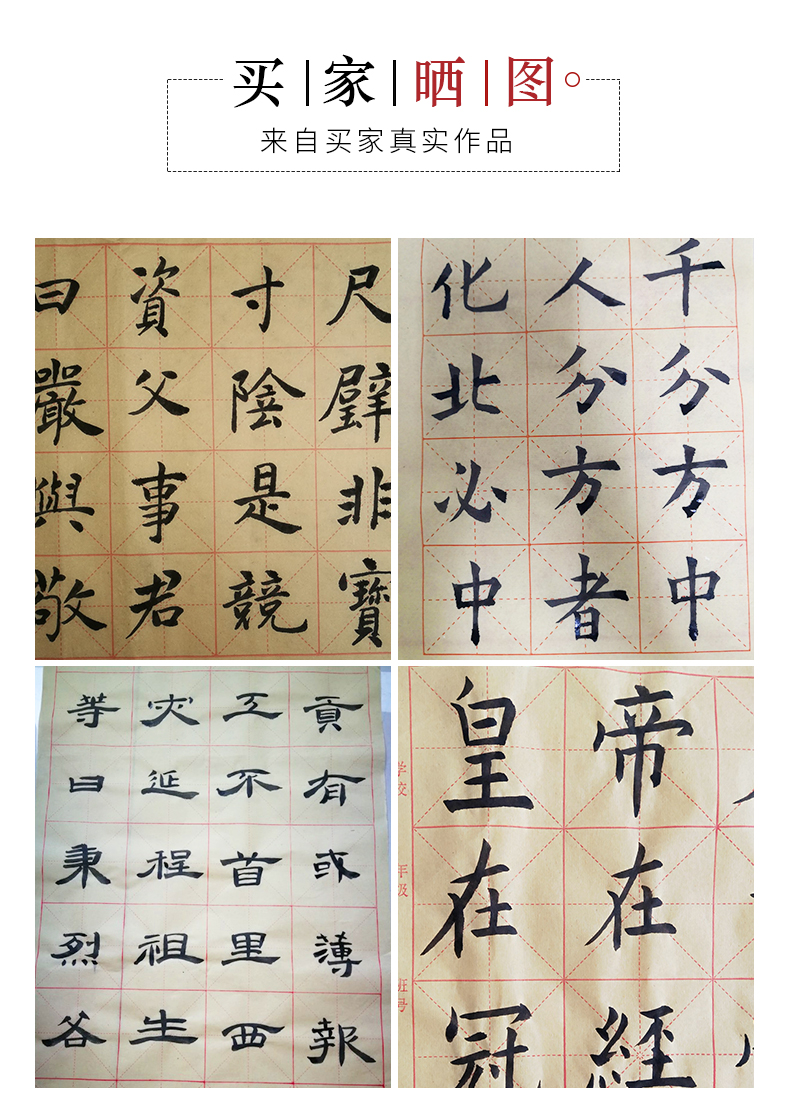 买家晒图
来自买家真实作品
尺璧非寶
寸陰是競
資父事君
曰嚴與敬
千分方中
人分方者
化北必中
貢有或薄報
工不首里西
灾延程祖生
等曰秉烈谷
帝在經
皇在冠
学校
年级
班号